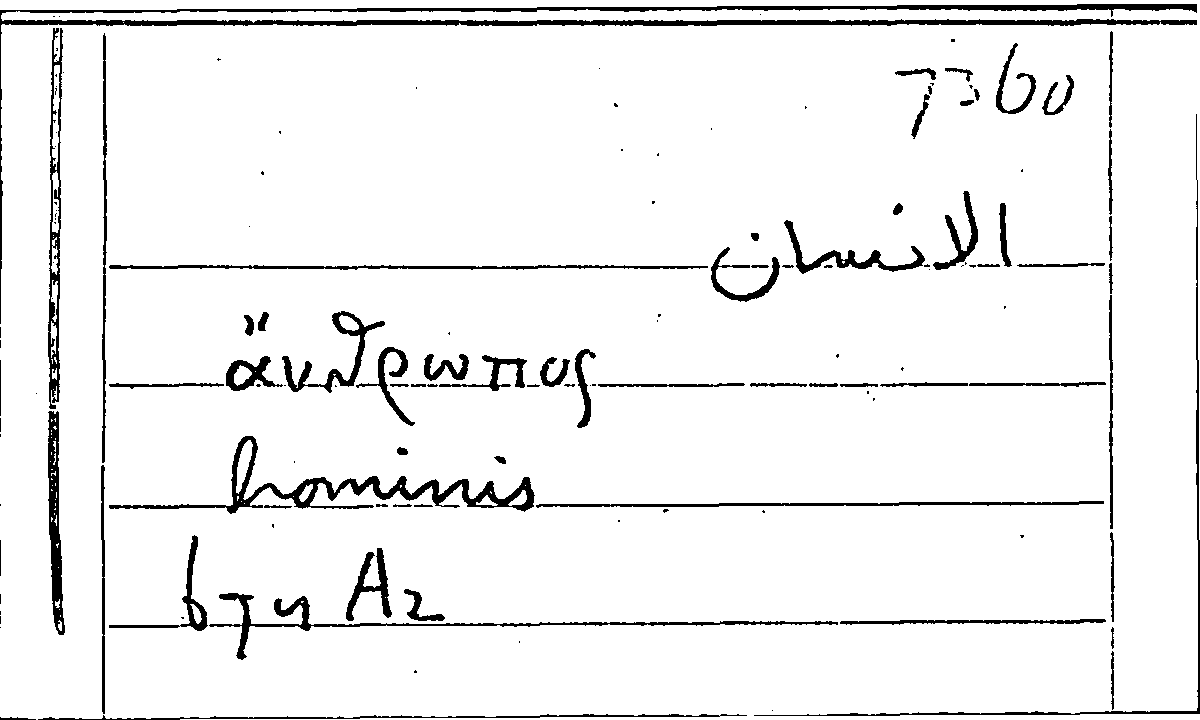 7360
الانسان
ἄνθρωπος
hominis